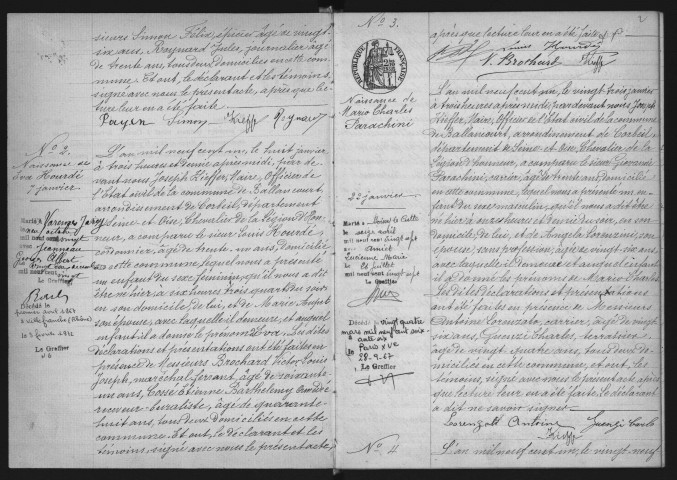 sieurs Simon Félix, épicier, âgé de vingt
six ans, Reynard Jules, journalier âgé
de trente ans, tous deux domiciliés en cette com
mune. Et ont, le déclarant et les témoins,
signé avec nous le présent acte, après que lec-
ture leur en a été faite.
Payen Simon Kieffer Reynard
No 2.
Naissance de
Eva Hourdé
7 janvier
Marié à
mil neuf cent vingt
Le Greffier
Décédée le
premier avril 1967
à Villefranche (Rhône)
le 3 février 1972
Le Greffier
L'an mil neuf cent un, le huit janvier
à trois heures et demie après midi, par de-
vant nous Joseph Kieffer, Maire, Officier de
l'Etat civil de la commune de Ballancourt,
arrondissement de Corbeil, département
de Seine et Oise, Chevalier de la Légion d'hon-
neur, a comparu le sieur Louis Hourdé,
cordonnier, âgé de trente un ans, domicilié
en cette commune, lequel nous a présenté
un enfant du sexe féminin, qu'il nous a dit
être né hier, à six heures trois quart du soir
en son domicile, de lui, et de Marie
son épouse, avec laquelle il demeure, et auquel
enfant il a donné le prénom d'Eva. Les dites
déclarations et présentations ont été faites en
présence de Messieurs Brochard Victor Louis
Joseph, maréchal ferrant, âgé de soixante
un ans, Cosse Etienne Barthélemy
receveur buraliste, âgé de quarante
huit ans, tous deux domiciliés en cette
commune. Et ont, le déclarant et les
témoins, signé avec nous le présent acte,
No 3.
RÉPUBLIQUE FRANÇAISE
Naissance de
Mario Charles
Parachini
22 janvier
Marié à
le seize avril
mil neuf cent vingt sept
Lucienne Marie
le 28 juillet
mil neuf cent vingt sept
Le Greffier
Décédé le vingt quatre
mars mil neuf cent soix
ante six
Paris XVe
le 28-9-67
Le Greffier
No 4
2
après que lecture leur en a été faite
Louis Hourdé
V. Brochard Kieffer
L'an mil neuf cent un, le vingt trois janvier
à trois heures après midi, par devant nous Joseph
Kieffer, Maire, Officier de l'Etat civil de la commune
de Ballancourt, arrondissement de Corbeil,
département de Seine et Oise, Chevalier de la
Légion d'honneur, a comparu le sieur
Parachini, carrier, âgé de trente ans, domicilié
en cette commune, lequel nous a présenté un
enfant du sexe masculin, qu'il nous a dit être
né hier à onze heures et demie du soir, en son
domicile, de lui, et de Angela
épouse, sans profession, âgée de vingt six ans,
avec laquelle il demeure, et auquel enfant
il a donné les prénoms de Mario Charles
Les dites déclarations et présentations ont
été faites en présence de Messieurs
Antoine Lorenzolo, carrier, âgé de vingt
ans, Guenzi Charles, terrassier,
âgé de vingt quatre ans, tous deux do-
miciliés en cette commune, et ont, les
témoins, signé avec nous le présent acte, après
que lecture leur en a été faite, le déclarant
a dit ne savoir signer.
Antoine Guenzi Carlo
Kieffer
L'an mil neuf cent un, le vingt neuf